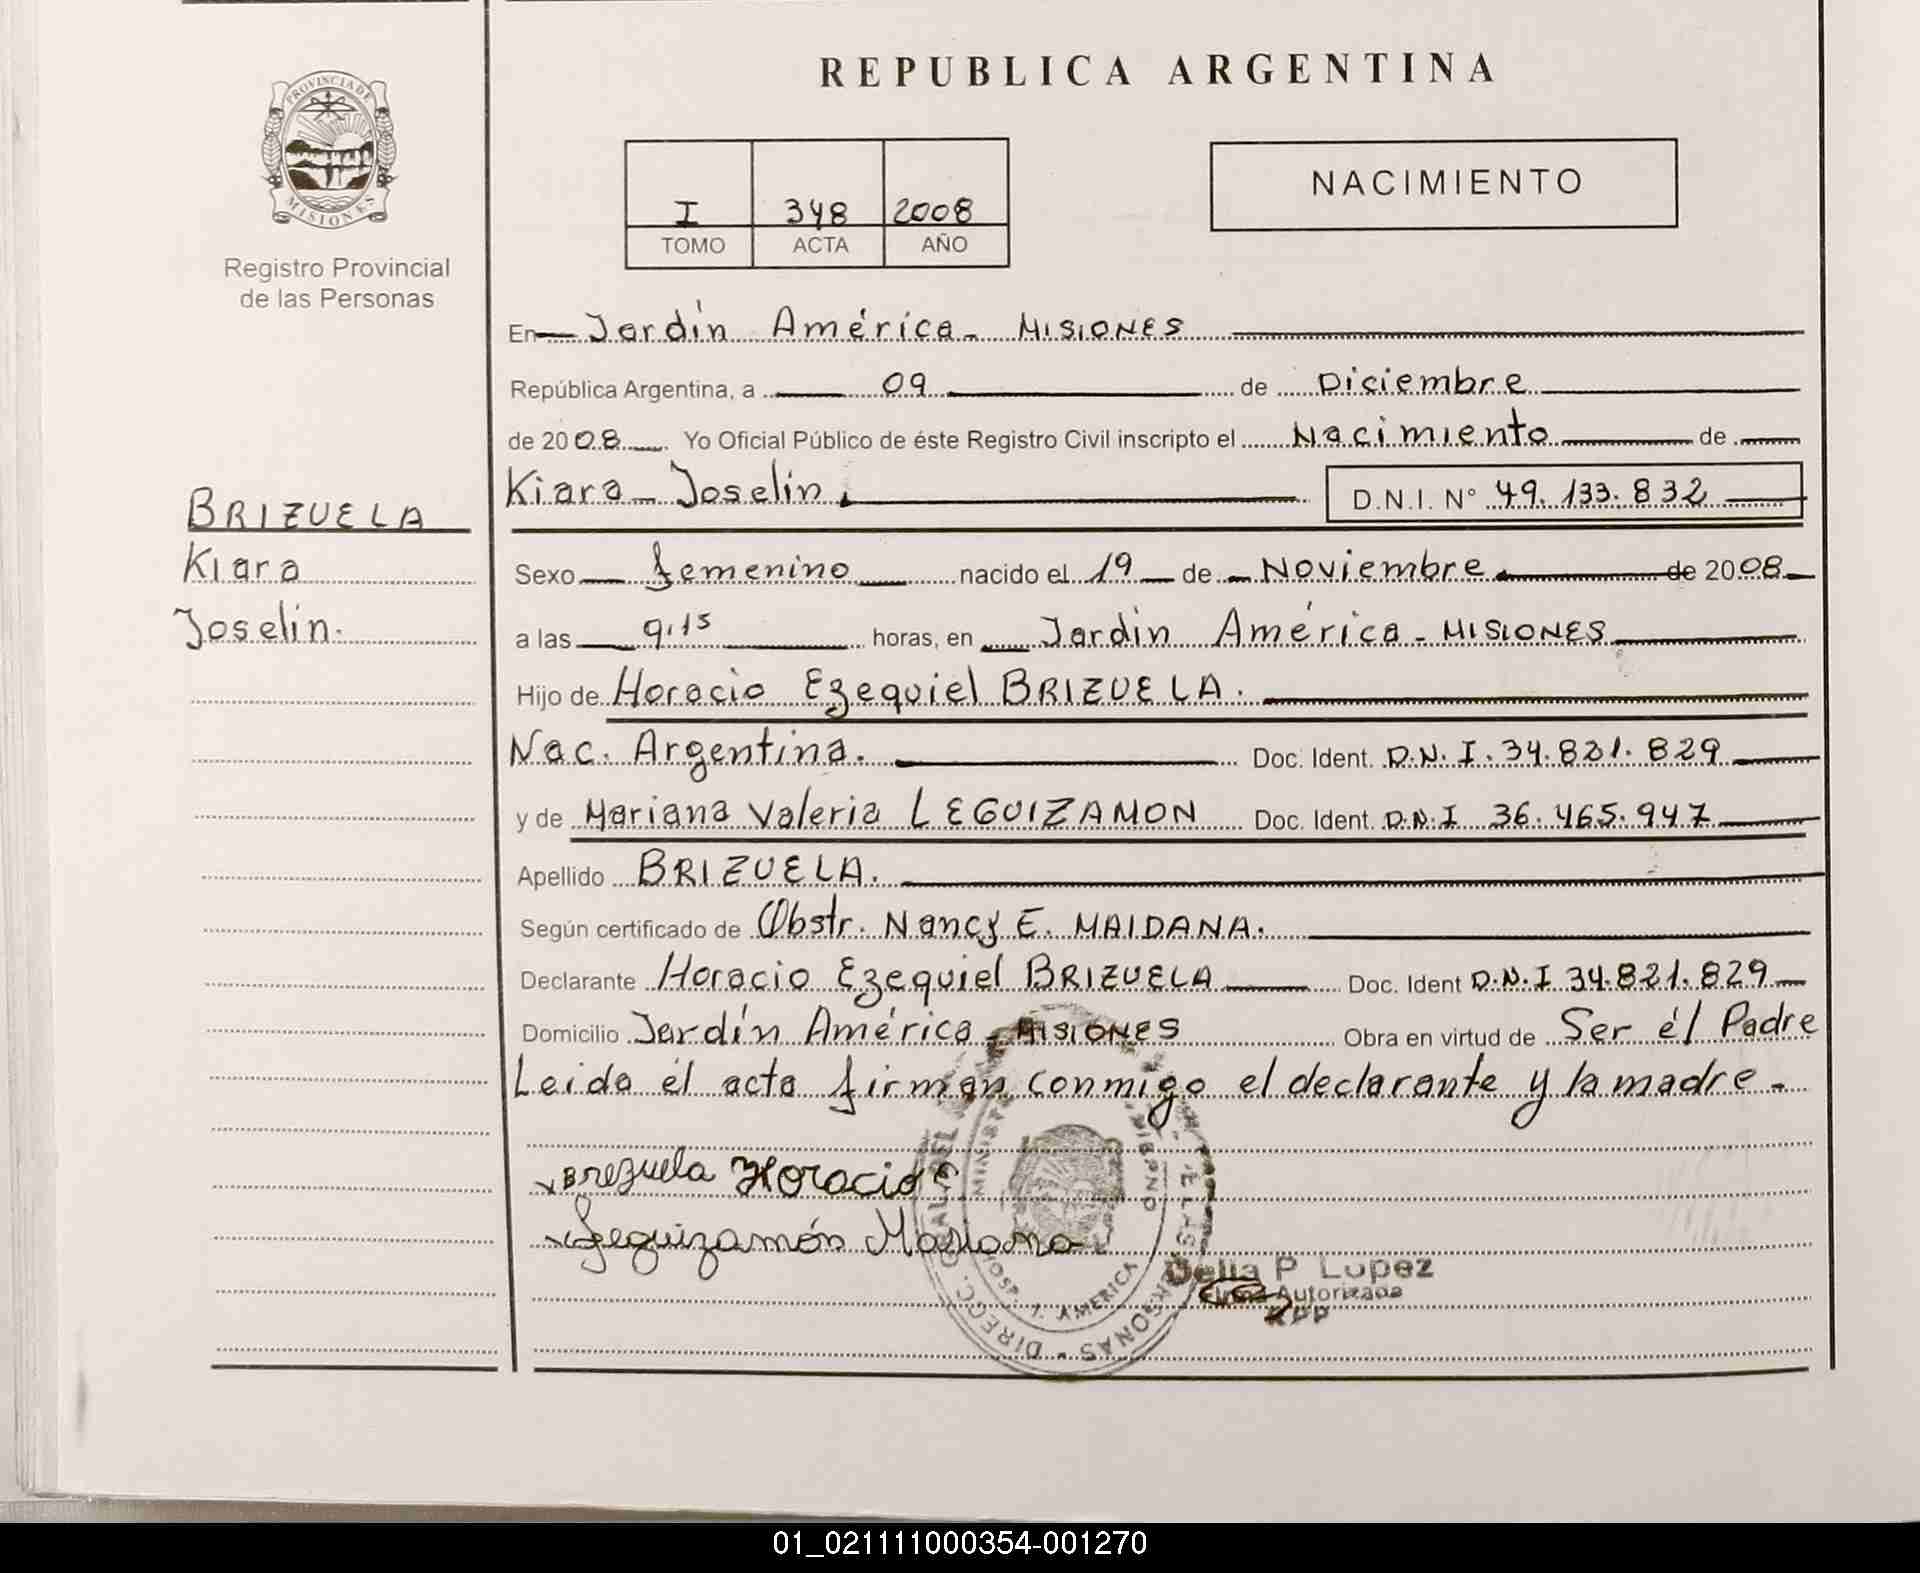 REPUBLICA ARGENTINA
PROVINCIA DE
MISIONES
Registro Provincial
de las Personas
I 348 2008
TOMO ACTA AÑO
NACIMIENTO
BRIZUELA
Kiara
Joselin.
En Jardín América - MISIONES
República Argentina, a 09 de Diciembre
de 2008 Yo Oficial Público de éste Registro Civil inscripto el Nacimiento de
Kiara Joselin. D.N.I. N° 49.133.832
Sexo femenino nacido el 19 de Noviembre de 2008
a las 9,15 horas, en Jardín América - MISIONES
Hijo de Horacio Ezequiel BRIZUELA.
Nac. Argentina. Doc. Ident. D.N.I. 34.821.829
y de Mariana Valeria LEGUIZAMON Doc. Ident. D.N.I 36.465.947
Apellido BRIZUELA.
Según certificado de Obstr. Nancy E. MAIDANA.
Declarante Horacio Ezequiel BRIZUELA Doc. Ident D.N.I 34.821.829
Domicilio Jardín América - MISIONES Obra en virtud de Ser él Padre
Leida él acta firman conmigo el declarante y la madre.
Brezuela Horacio E
Leguizamón Mariana
HOSP. J. AMERICA
Delia P Lopez
Firma Autorizada
RPP
01_021111000354-001270